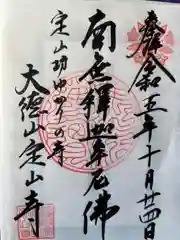 奉拝 令和五年十月廿四日
南無釋迦牟尼佛
定山坊ゆかりの寺
大德山定山寺